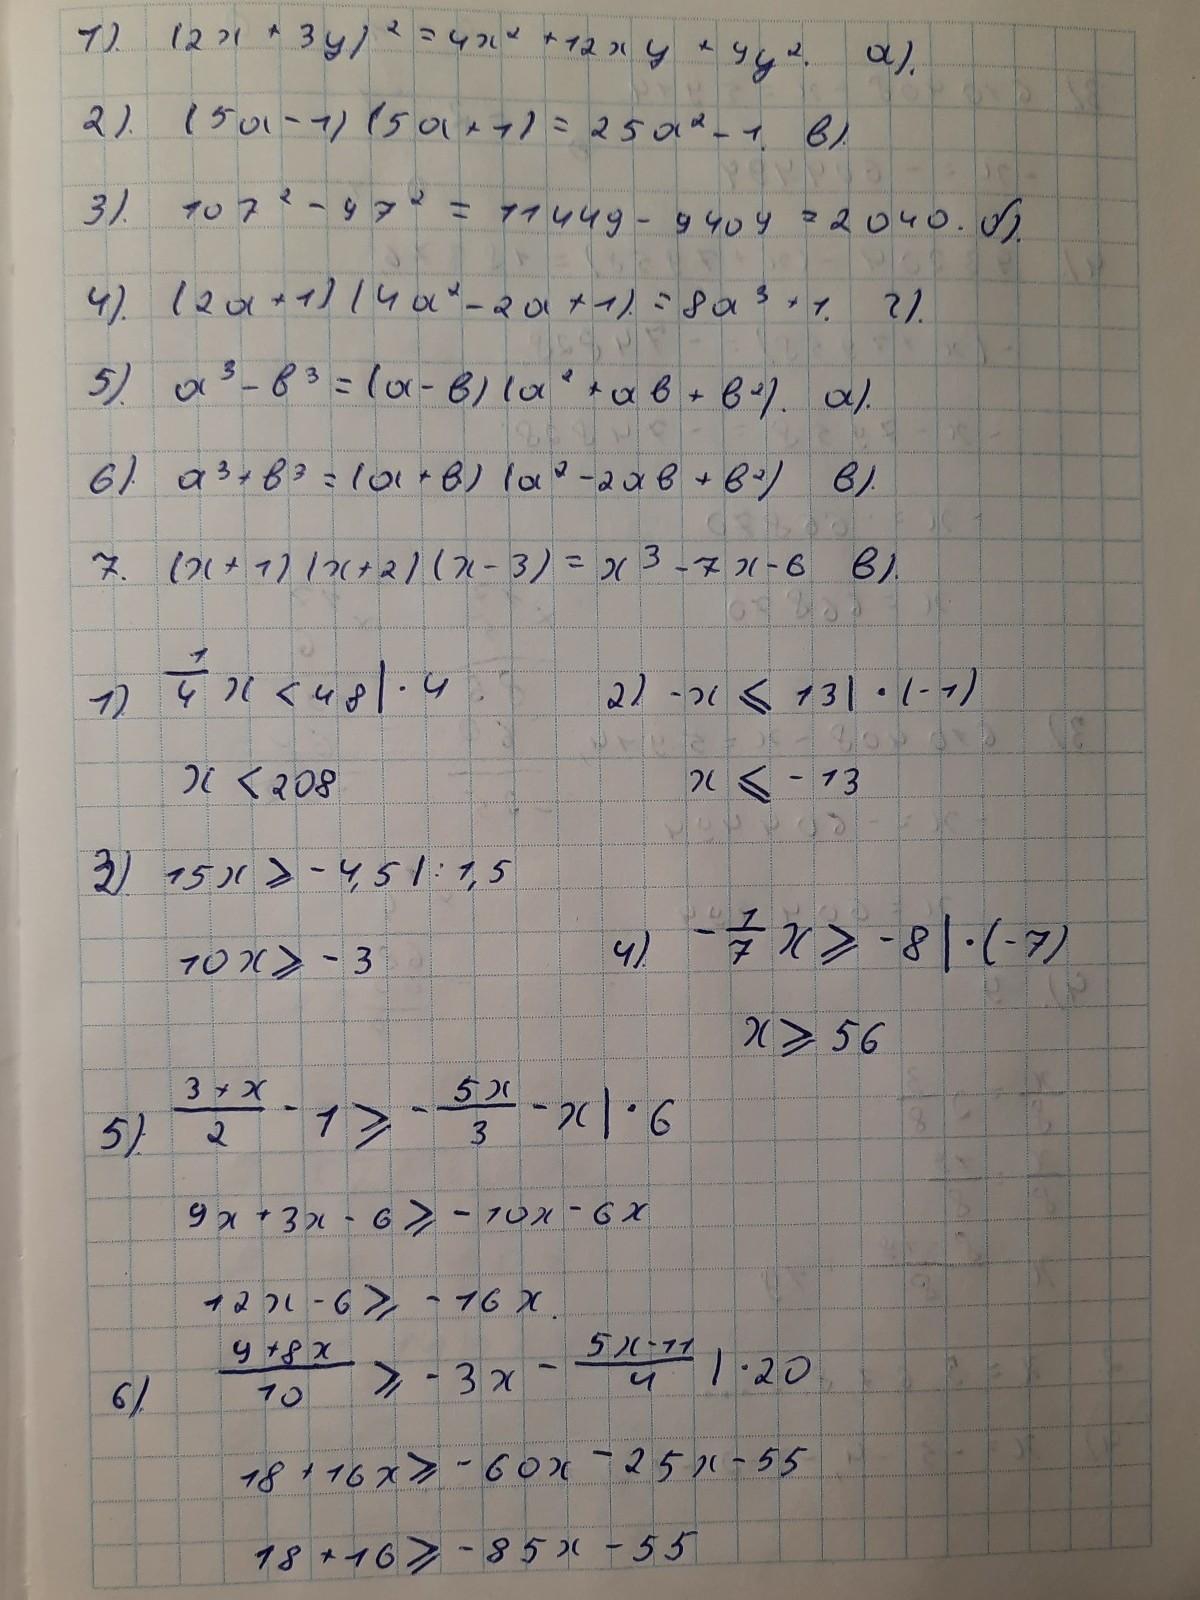 1). (2x + 3y)² = 4x² + 12xy + 9y². а).
2). (5a - 1) (5a + 1) = 25a² - 1. в).
3). 107² - 97² = 11449 - 9409 = 2040. б).
4). (2a + 1) (4a² - 2a + 1). = 8a³ + 1. г).
5). a³ - b³ = (a - b) (a² + ab + b²). а).
6). a³ + b³ = (a + b) (a² - 2ab + b²) в).
7. (x + 1) (x + 2) (x - 3) = x³ - 7x - 6 в).
1) 1/4 x < 48 | · 4
x < 208
2) -x ⩽ 13 | · (-1)
x ⩽ -13
3) 15x ⩾ -4,5 | : 1,5
10x ⩾ -3
4). -1/7 x ⩾ -8 | · (-7)
x ⩾ 56
5). (3 + x)/2 - 1 ⩾ - 5x/3 - x | · 6
9x + 3x - 6 ⩾ -10x - 6x
12x - 6 ⩾ -16x.
6). (9 + 8x)/10 ⩾ -3x - (5x - 11)/4 | · 20
18 + 16x ⩾ -60x - 25x - 55
18 + 16 ⩾ -85x - 55